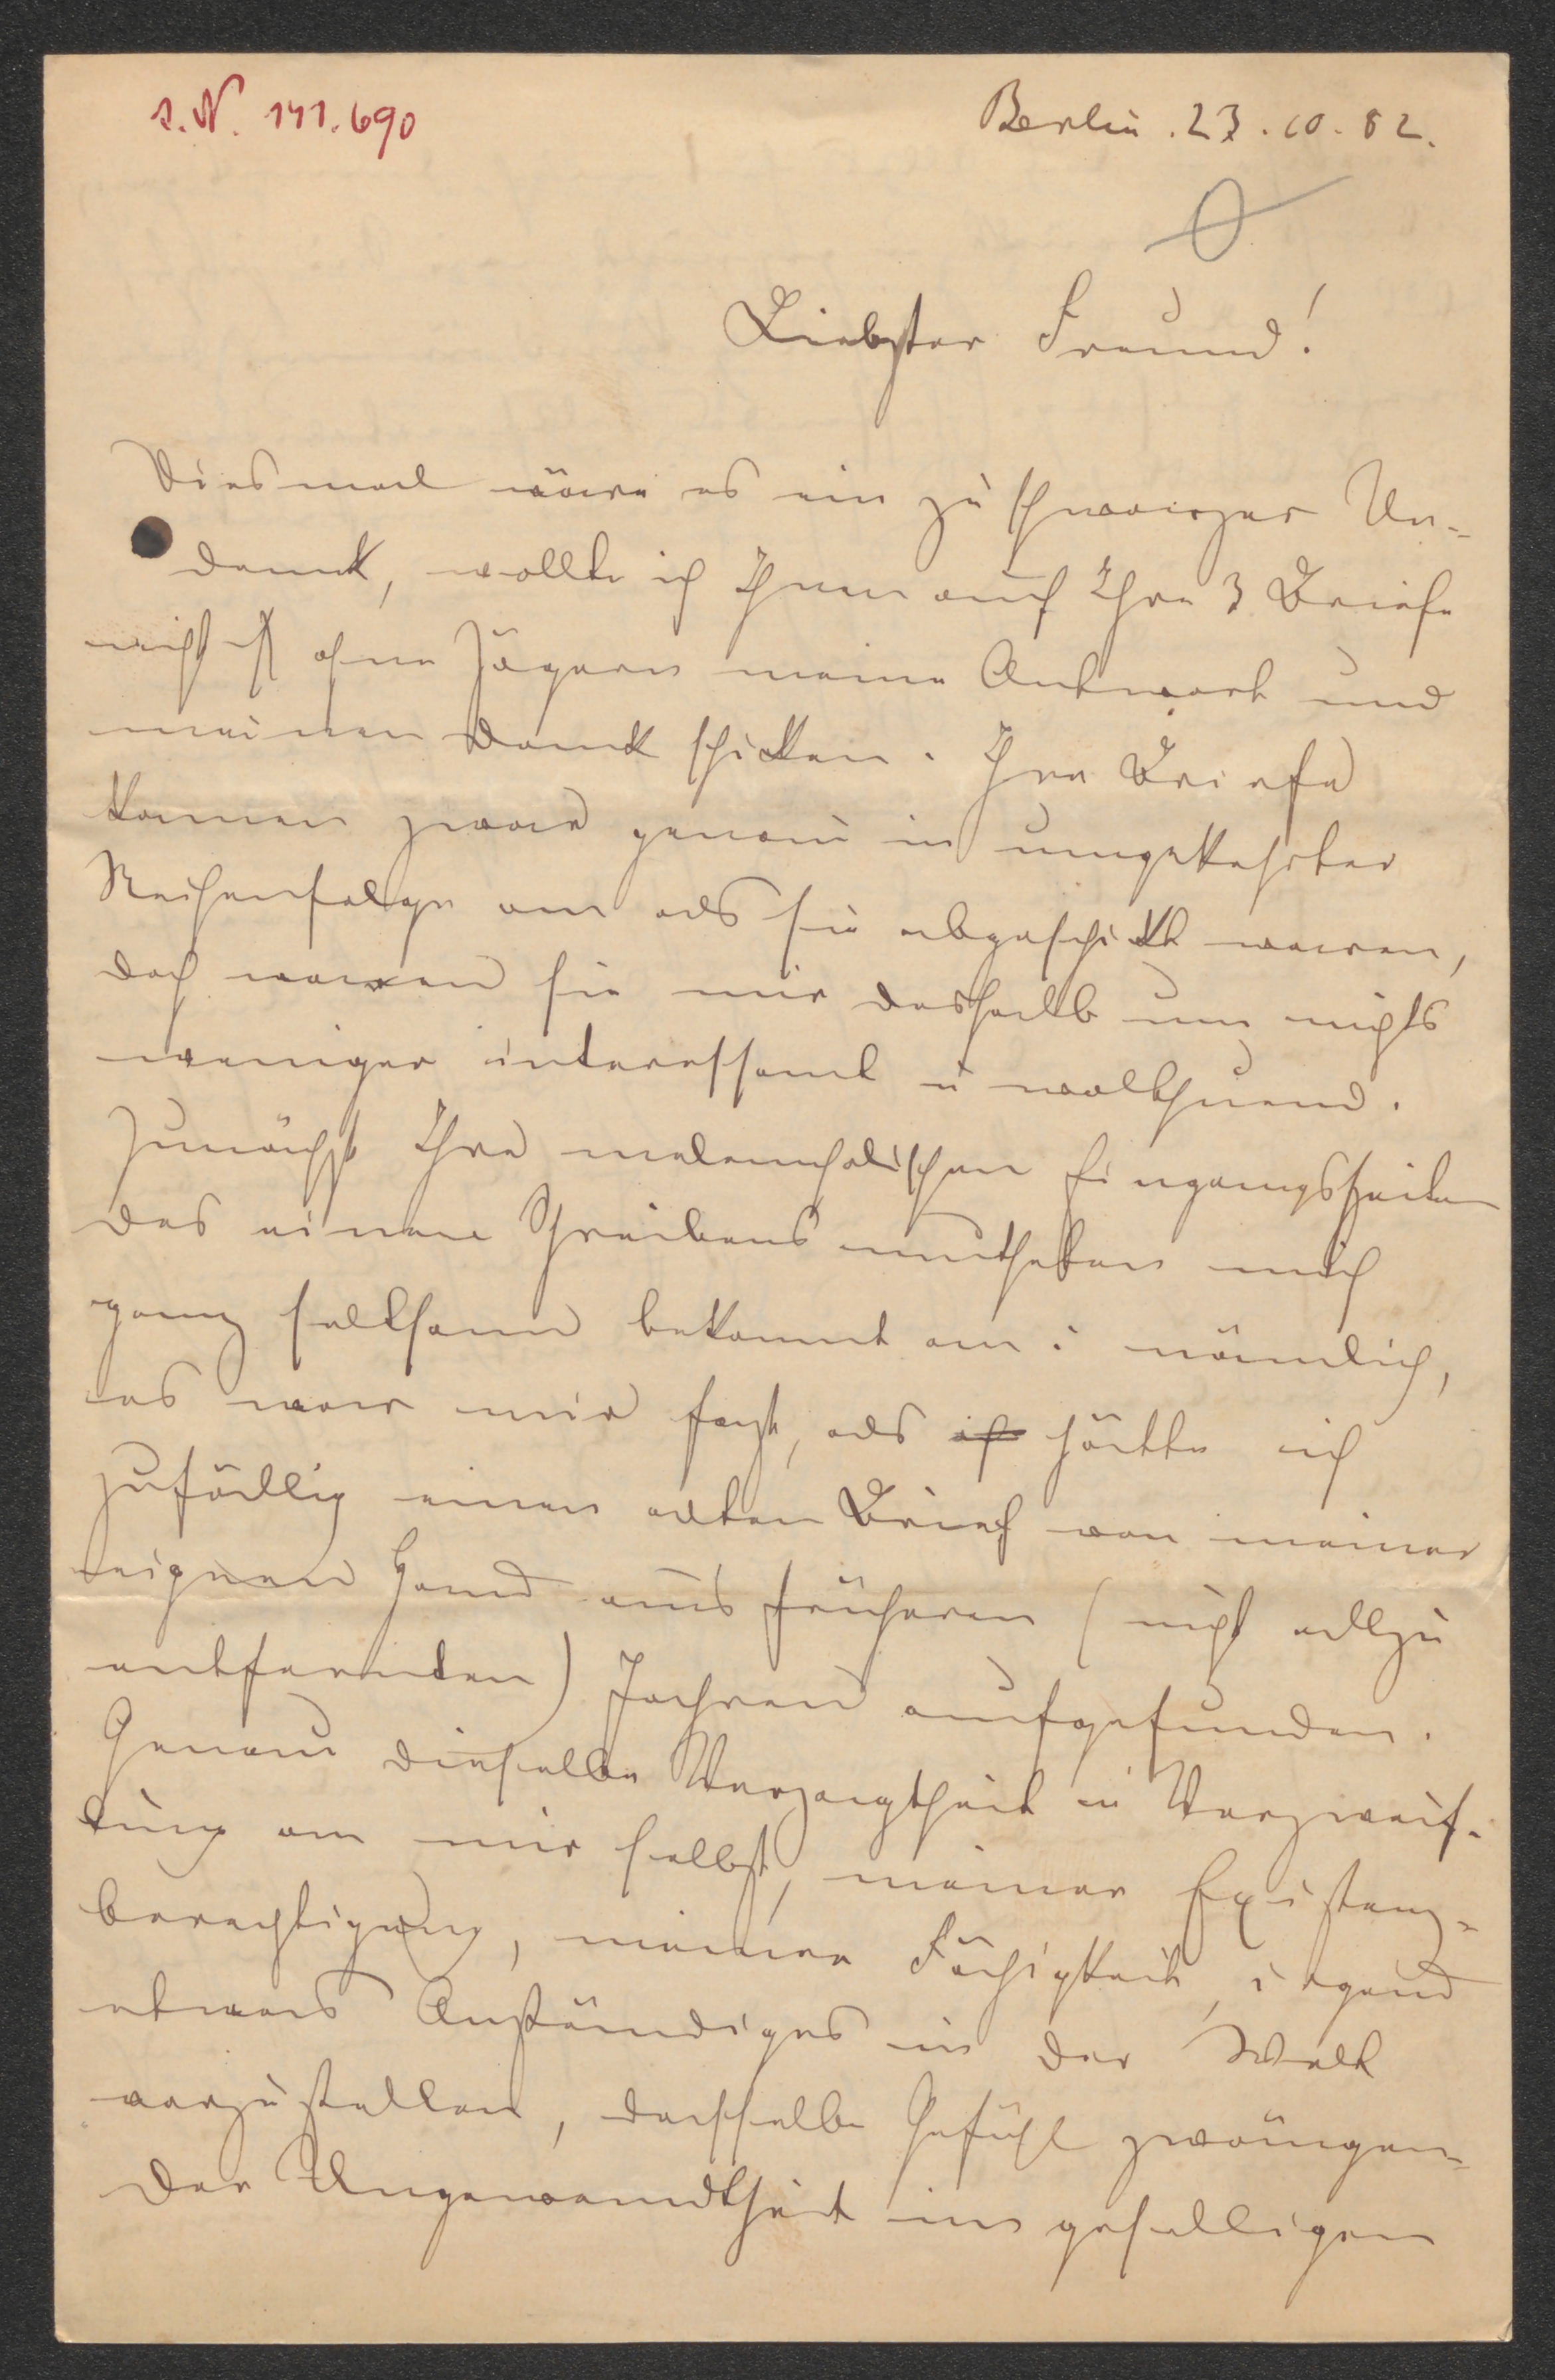 I. N. 141.690
Berlin. 23.10.82.
Liebster Freund!
Diesmal wäre es ein zu schwarzer Un-
dank, wollte ich Ihnen auf Ihre 3 Briefe
nicht ohne Zögern meine Antwort und
meinen Dank schicken. Ihre Briefe
kamen zwar genau in umgekehrter
Reihenfolge an als sie abgeschickt waren,
doch waren sie mir deshalb um nichts
weniger interessant u wolthuend.
Zunächst Ihre melancholischen Eingangszeilen
des einen Schreibens mutheten mich
ganz seltsam bekannt an: nämlich,
es war mir fast, als ich hätte ich
zufällig einen alten Brief von meiner
eignen Hand aus früheren (nicht allzu
entfernten) Jahren aufgefunden.
Genau dieselbe Verzagtheit u Verzweif-
lung an mir selbst, meiner Existenz-
berechtigung, meiner Fähigkeit, irgend
etwas Anständiges in der Welt
vorzustellen, dasselbe Gefühl zwängen-
der Ungewandtheit im geselligen